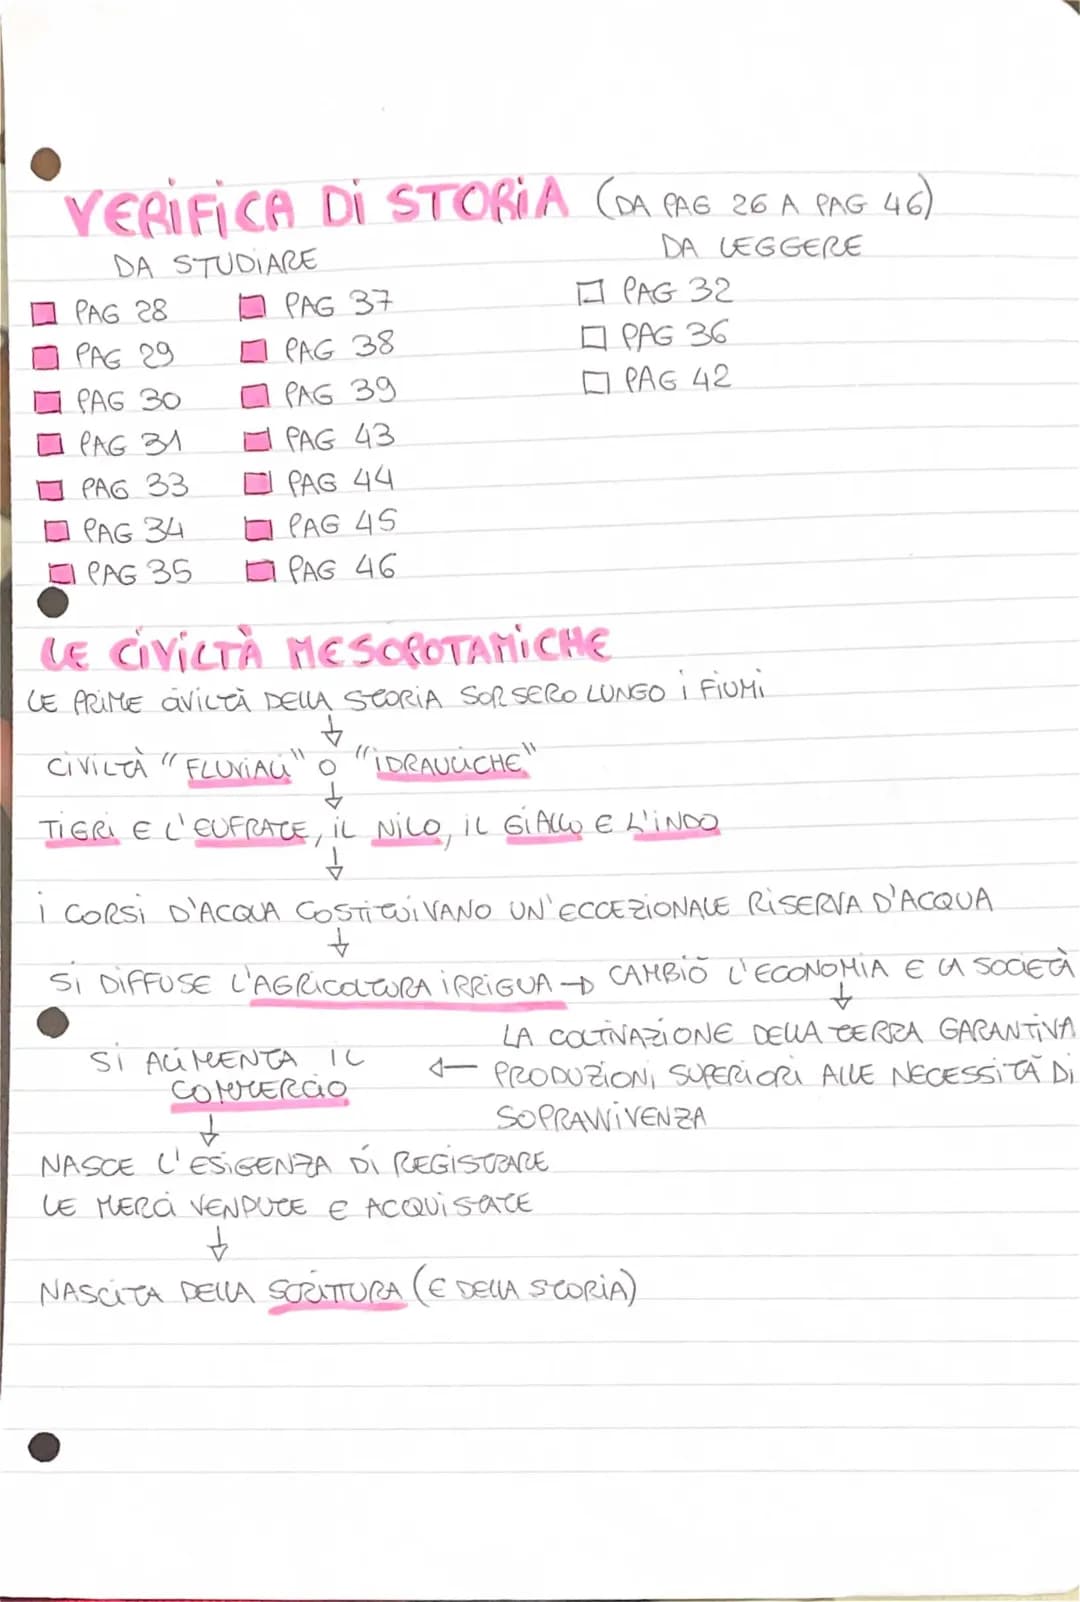 VERIFICA DI STORIA (DA PAG 26 A PAG 46)
DA STUDIARE
DA LEGGERE
PAG 28
PAG 37
PAG 32
PAG 29
PAG 38
PAG 36
PAG 30
PAG 39
PAG 42
PAG 31
PAG 43
PAG 33
PAG 44
PAG 34
PAG 45
PAG 35
PAG 46
LE CIVILTÀ MESOPOTAMICHE
LE PRIME CIVILTÀ DELLA STORIA SORSERO LUNGO I FIUMI
↓
CIVILTÀ "FLUVIALI" O "IDRAULICHE"
↓
TIGRI E L'EUFRATE, IL NILO, IL GIALLO E L'INDO
↓
I CORSI D'ACQUA COSTITUIVANO UN'ECCEZIONALE RISERVA D'ACQUA
↓
SI DIFFUSE L'AGRICOLTURA IRRIGUA → CAMBIÒ L'ECONOMIA E LA SOCIETÀ
↓
LA COLTIVAZIONE DELLA TERRA GARANTIVA
← PRODUZIONI SUPERIORI ALLE NECESSITÀ DI
SOPRAVVIVENZA
SI ALIMENTA IL
COMMERCIO
↓
NASCE L'ESIGENZA DI REGISTRARE
LE MERCI VENDUTE E ACQUISTATE
↓
NASCITA DELLA SCRITTURA (E DELLA STORIA)